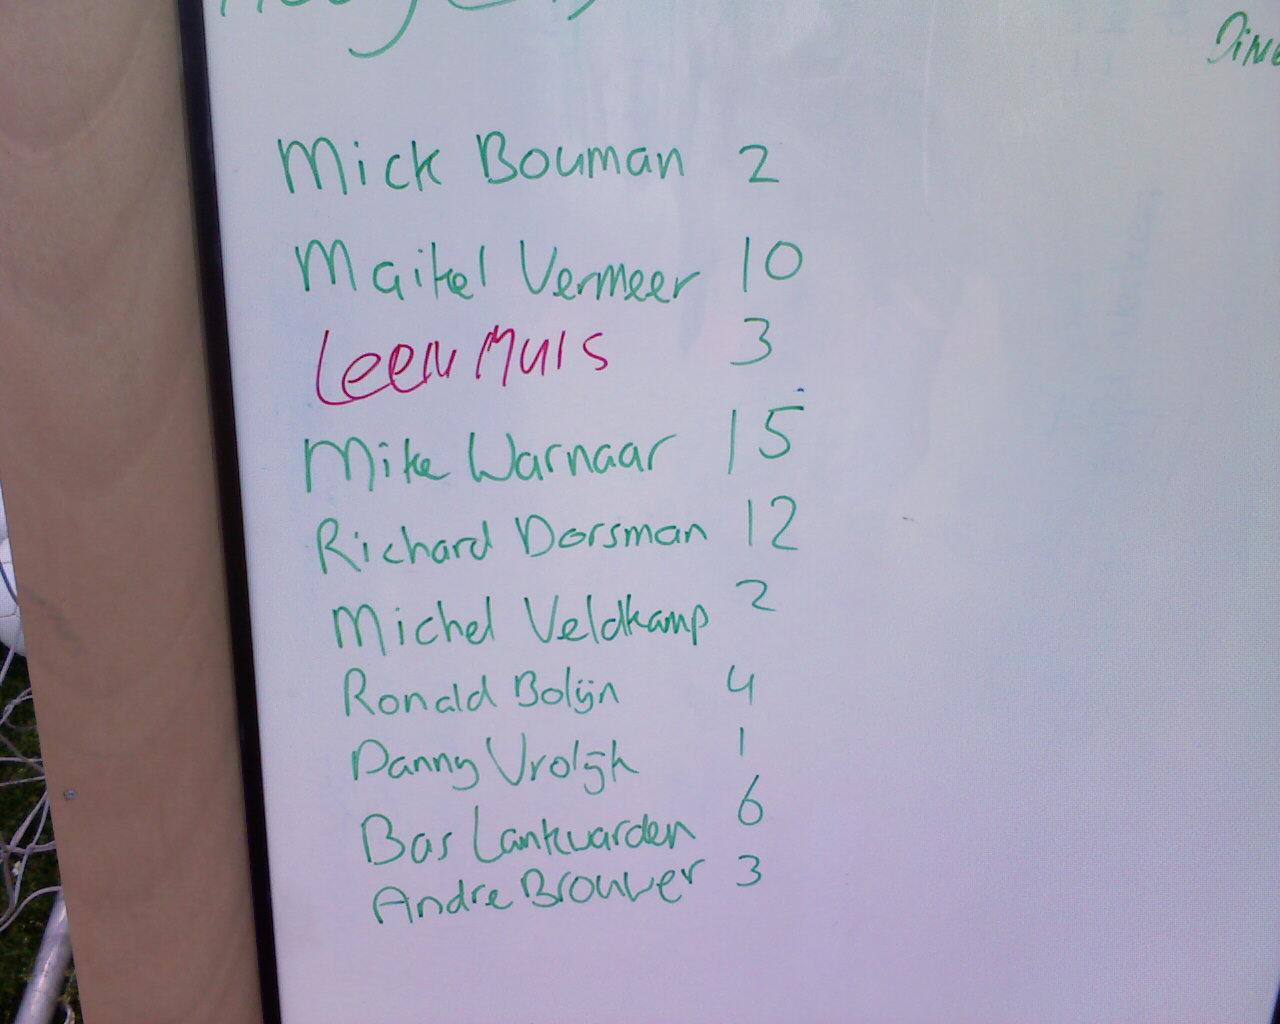 Mick Bouman 2
Maikel Vermeer 10
Leen Muis 3
Mike Warnaar 15
Richard Dorsman 12
Michel Veldkamp 2
Ronald Bolijn 4
Danny Vrolijk 1
Bas Lankwarden 6
Andre Brouwer 3